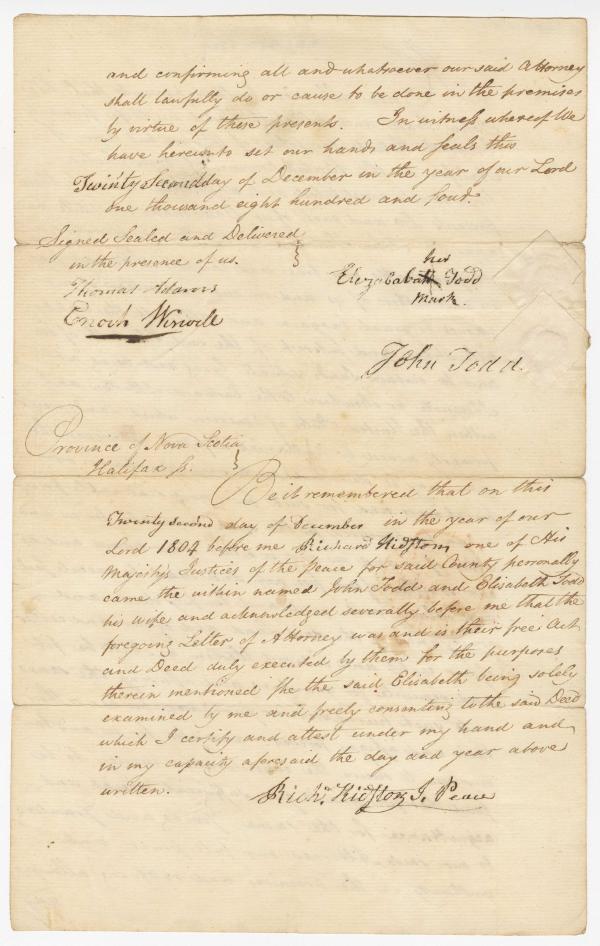 and confirming all and whatsoever our said Attorney
shall lawfully do or cause to be done in the premises
by virtue of these presents. In witness whereof We
have hereunto set our hands and seals this
Twinty Second day of December in the year of our Lord
one thousand eight hundred and four.
Signed Sealed and Delivered
in the presence of us.
Thomas Adams
Enoch
her
Elizabath Todd
mark.
John Todd.
Province of Nova Scotia
Halifax ss.
Be it remembered that on this
Twinty second day of December in the year of our
Lord 1804 before me Richard Kidston one of His
Majestys Justices of the Peace for said County personally
came the within named John Todd and Elisabeth Todd
his wife and acknowledged severally before me that the
foregoing Letter of Attorney was and is their free Act
and Deed duly executed by them for the purposes
therein mentioned She the said Elisabeth being solely
examined by me and freely consenting to the said Deed
which I certify and attest under my hand and
in my capacity aforesaid the day and year above
written.
Richd. Kidston J. Peace